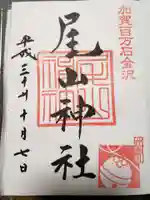 加賀百万石金沢
尾山神社
平成三十年十月七日